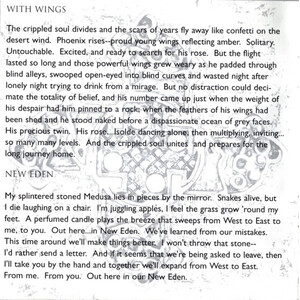 WITH WINGS
The crippled soul divides and the scars of years fly away like confetti on the
desert wind. Phoenix rises--proud young wings reflecting amber. Solitary.
Untouchable. Excited, and ready to search for his rose. But the flight
lasted so long and those powerful wings grew weary as he padded through
blind alleys, swooped open-eyed into blind curves and wasted night after
lonely night trying to drink from a mirage. But no distraction could deci-
mate the totality of belief, and his number came up just when the weight of
his despair had him pinned to a rock; when the feathers of his wings had
been shed and he stood naked before a dispassionate ocean of grey faces.
His precious twin. His rose...Isolde dancing alone; then multiplying, inviting...
so many many levels. And the crippled soul unites and prepares for the
long journey home.
NEW EDEN
My splintered stoned Medusa lies in pieces by the mirror. Snakes alive, but
I die laughing on a chair. I'm juggling apples, I feel the grass grow 'round my
feet. A perfumed candle plays the breeze that sweeps from West to East to
me, to you. Out here...in New Eden. We've learned from our mistakes.
This time around we'll make things better, I won't throw that stone--
I'd rather send a letter. And if it seems that we're being asked to leave, then
I'll take you by the hand and together we'll expand from West to East.
From me. From you. Out here in our New Eden.